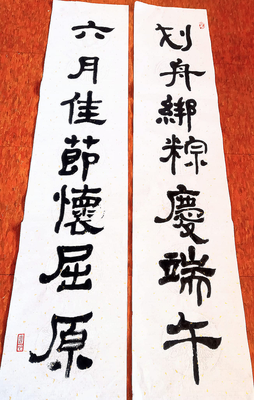 划舟綁粽慶端午
六月佳節懷屈原